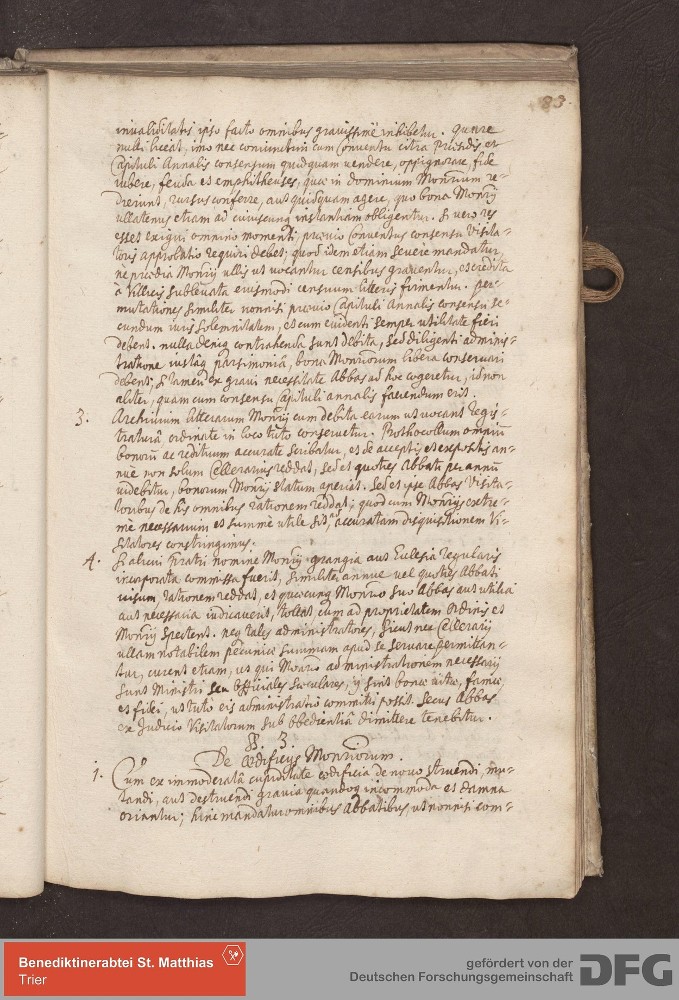 83.
invaliditatis ipso facto omnibus gravissimè inhibetur. Quare
nulli liceat, imo nec coniunctim cum Conventu citra Præsidis et
Capituli Annalis consensum quidquam vendere, oppignorare, fide
iubere, feuda et emphitheuses, quæ in dominium Monriorum re-
dierunt, rursus conferre, aut quidquam agere, quo bona Monrij
ullatenus etiam ad cuiuscunq instantiam obligentur. Si vero res
esset exigui omnino momenti prævio Conventus consensu Visita-
toris approbatio requiri debet, quod idem etiam severe mandatur,
ne prædia Monrij ullis ut vocantur censibus graventur, et credita
à Villicis sublevata eiusmodi censuum litteris firmentur. Per-
mutationes similiter nonnisi prævio Capituli Annalis consensu se-
cundum iuris solemnitatem, et cum evidenti semper utilitate fieri
debent. nulla deniq contrahenda sunt debita, sed diligenti adminis-
tratione iustâq parsimoniâ, bona Monriorum libera conservari
debent; si tamen ex gravi necessitate Abbas ad hoc cogeretur, id non
aliter, quam cum consensu Capituli annalis faciendum erit.
3. Archivium litterarum Monrij cum debita earum ut vocant Regis-
traturâ ordinate in loco tuto conservetur. Prothocollum omniũ
bonorũ ac redituum accurate scribatur, et de acceptis et expositis an-
nue non solum Cellerarius reddat, sed et quoties Abbati per annũ
videbitur, bonorum Monrij statum aperiet. Sed et ipse Abbas Visita-
toribus de his omnibus rationem reddat; quod cum Monrijs extre-
mè necessarium et summè utile sit, ad accuratam disquisitionem Vi-
sitatores constringimus.
4. Si alicui fratri nomine Monrij grangia aut Ecclesia regularis
incorporata commissa fuerit, similiter annue vel quoties Abbati
visum rationem reddat, et quæcunq Monrio suo Abbas aut utilia
aut necessaria iudicaverit, tollat, cum ad proprietatem Ordinis et
Monrij spectent. neq tales administratores, sicut nec Cellerarij
ullam notabilem pecuniæ summam apud se servare permittan-
tur, curent etiam, ut qui Monrio ad ministrationem necessarij
sunt Ministri seu Officiales Sæculares, ij sint bonæ vitæ, famæ,
et fidei, ut tuto eis administratio committi possit. Secus Abbas
ex Judicio Visitatorum sub obedientiâ dimittere tenebitur.
§ 3
De ædificijs Monriorum.
1. Cum ex immoderatâ cupiditate ædificia de novo struendi, mu-
tandi, aut destruendi gravia quandoq incommoda et damna
oriantur; hinc mandatur omnibus Abbatibus, ut nonnisi com-
Benediktinerabtei St. Matthias
Trier
gefördert von der
Deutschen Forschungsgemeinschaft
DFG